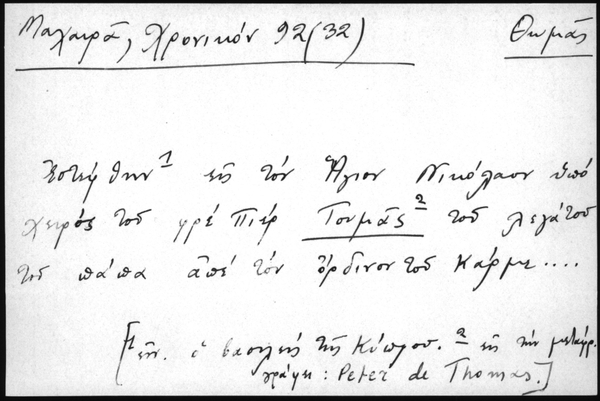 Μαχαιρᾶ, Χρονικόν 92 (32) Θωμάς
Ἐστέφθην¹ εἰς τὸν Ἅγιον Νικόλαον ὑπὸ
χειρὸς τοῦ φρὲ Πιὲρ Τουμᾶς² τοῦ λεγάτου
τοῦ πάπα ἀπὲ τὸν ὄρδινον τοῦ Κάρμε....
[¹ ἐνν. ὁ βασιλεὺς τῆς Κύπρου. ² εἰς τὴν μετάφρ.
γράφει : Peter de Thomas.]